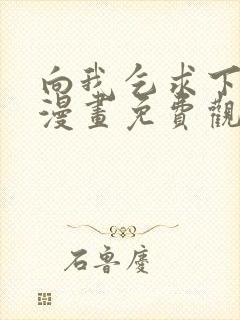 向我乞求下
漫畫免費觀
石魯慶